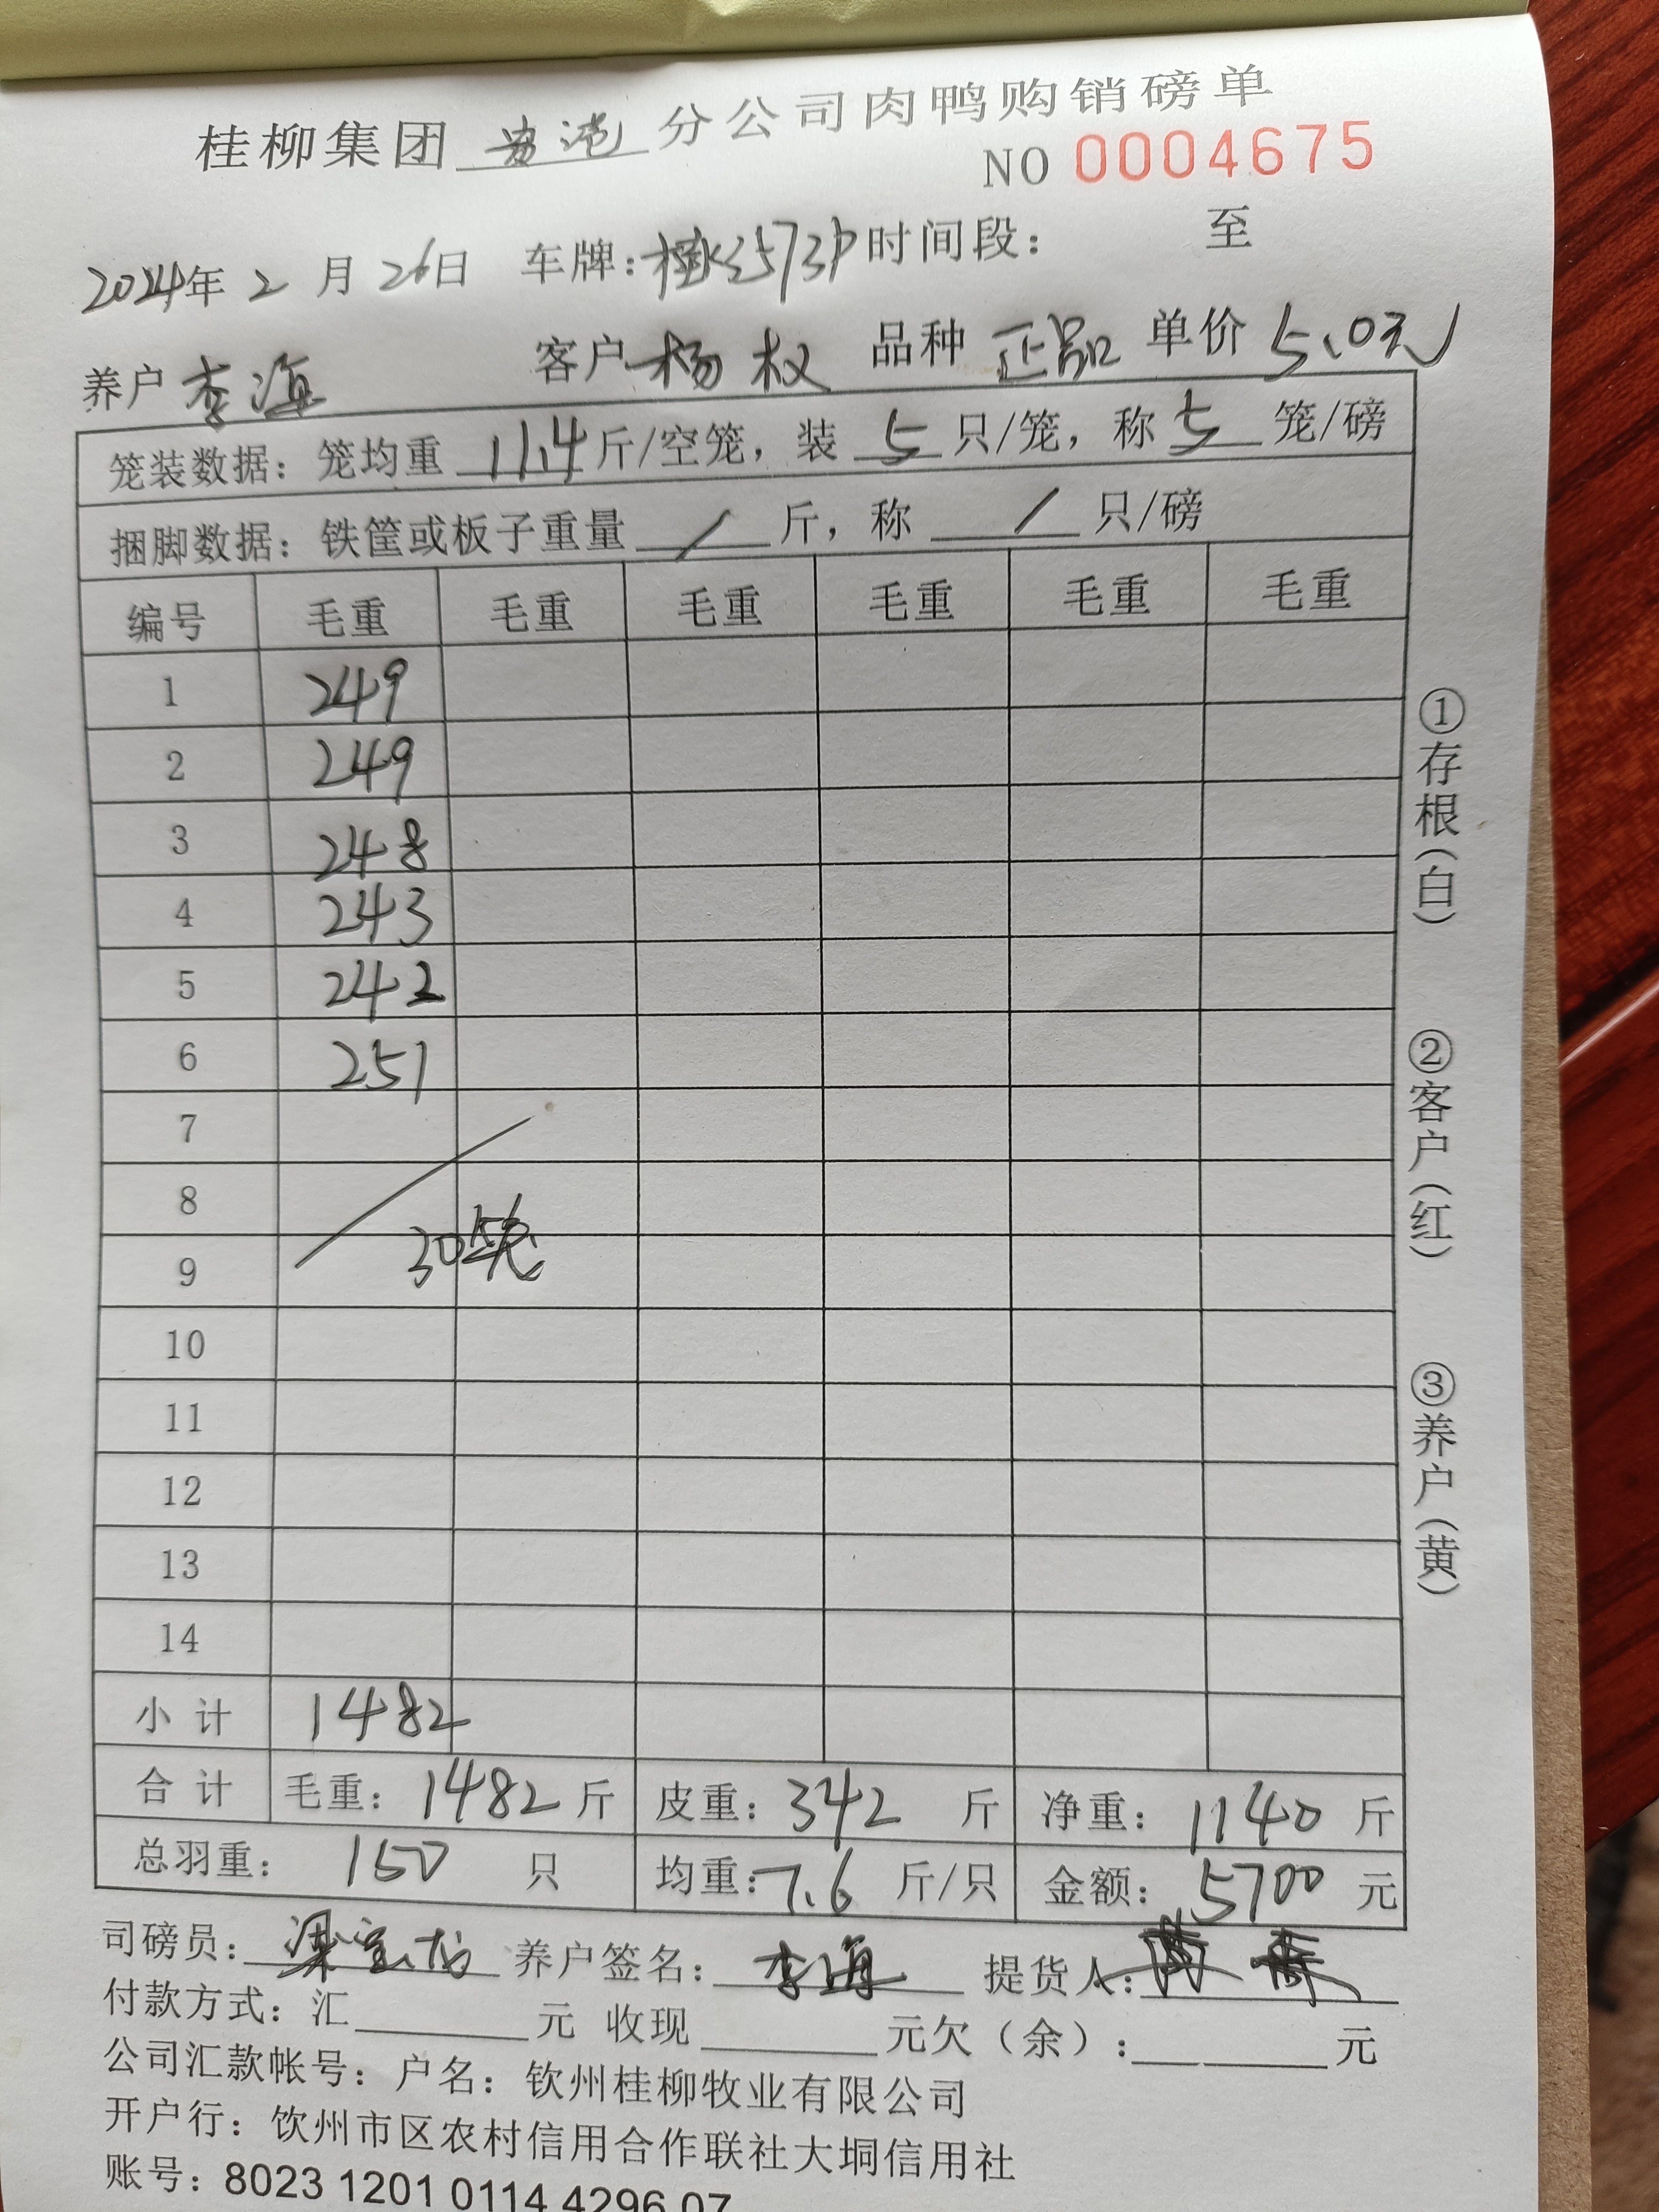 桂柳集团 贵港 分公司肉鸭购销磅单
NO 0004675
2024年 2 月 26日 车牌: 时间段: 至
养户 李海 客户 杨权 品种 正品 单价 5.0元
笼装数据: 笼均重 11.4 斤/空笼, 装 5 只/笼, 称 5 笼/磅
捆脚数据: 铁筐或板子重量 / 斤, 称 / 只/磅
编号 毛重 毛重 毛重 毛重 毛重 毛重
1 249
2 249
3 248
4 243
5 242
6 251
7
8
9 30笼
10
11
12
13
14
小计 1482
合计 毛重: 1482 斤 皮重: 342 斤 净重: 1140 斤
总羽重: 150 只 均重: 7.6 斤/只 金额: 5700 元
司磅员: 养户签名: 李海 提货人:
付款方式: 汇 元 收现 元欠(余): 元
公司汇款帐号: 户名: 钦州桂柳牧业有限公司
开户行: 钦州市区农村信用合作联社大垌信用社
账号: 8023 1201 0114 4296 07
①存根(白)
②客户(红)
③养户(黄)